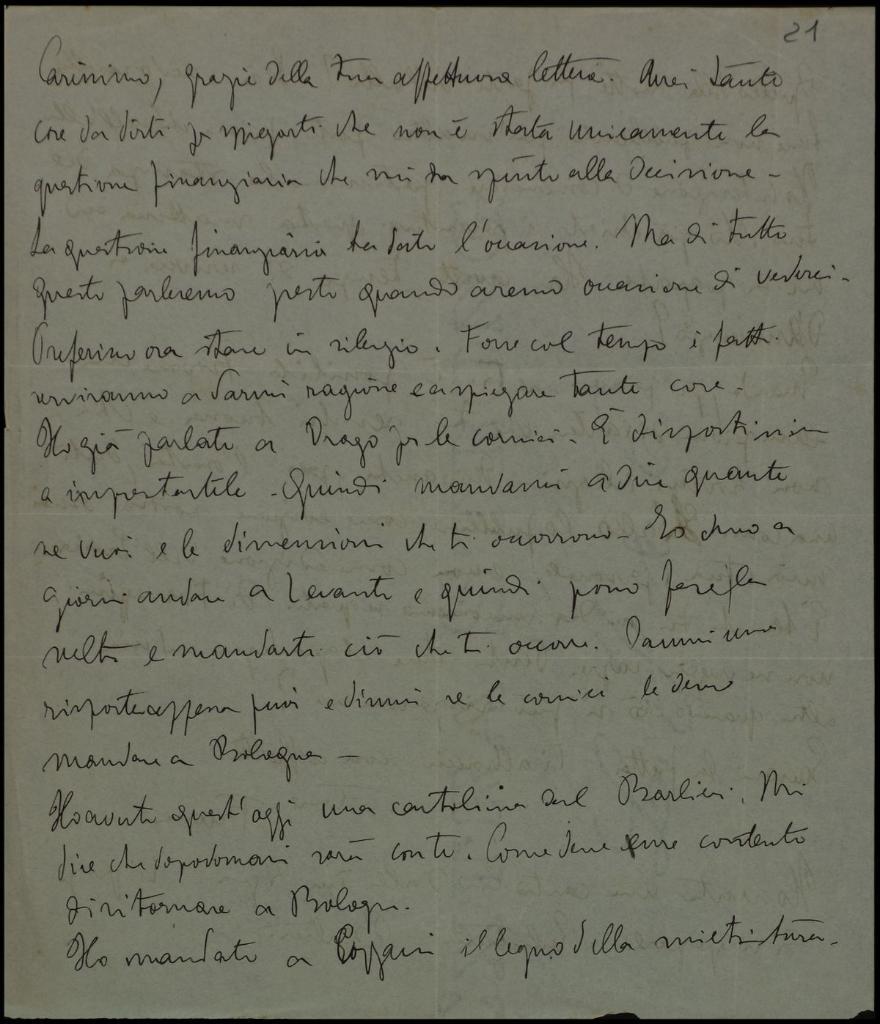 21
Carissimo, grazie della tua affettuosa lettera. Avrei tante
cose da dirti per spiegarti che non è stata unicamente la
questione finanziaria che mi ha spinto alla decisione -
La questione finanziaria ha dato l'occasione. Ma di tutto
questo parleremo presto quando avremo occasione di vederci -
Preferisco ora stare in silenzio. Forse col tempo i fatti
serviranno a darmi ragione e a spiegare tante cose -
Ho già parlato a Drago per le cornici. È dispostissimo
a imprestartele - Quindi mandami a dire quante
ne vuoi e le dimensioni che ti occorrono - Io devo a
giorni andare a Levanto e quindi posso far
e mandarti ciò che ti occorre. Dammi una
risposta appena puoi e dimmi se le cornici le devo
mandare a Bologna -
Ho avuto quest'oggi una cartolina del Barbieri. Mi
dice che dopodomani sarà costì. Come deve essere contento
di ritornare a Bologna.
Ho mandato a Cozzani il legno della mietitura -